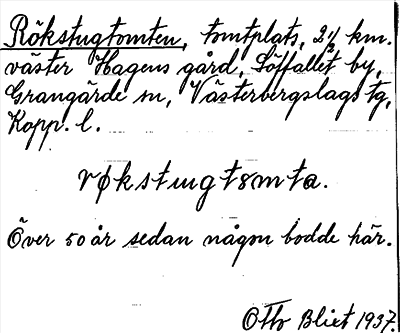 Rökstugtomten, tomtplats, 2 1/2 km.
väster Hagens gård, Löffallet by,
Grangärde sn, Västerbergslags tg,
Kopp. l.
røkstugtomta.
Över 50 år sedan någon bodde här.
Otto Blixt 1937.